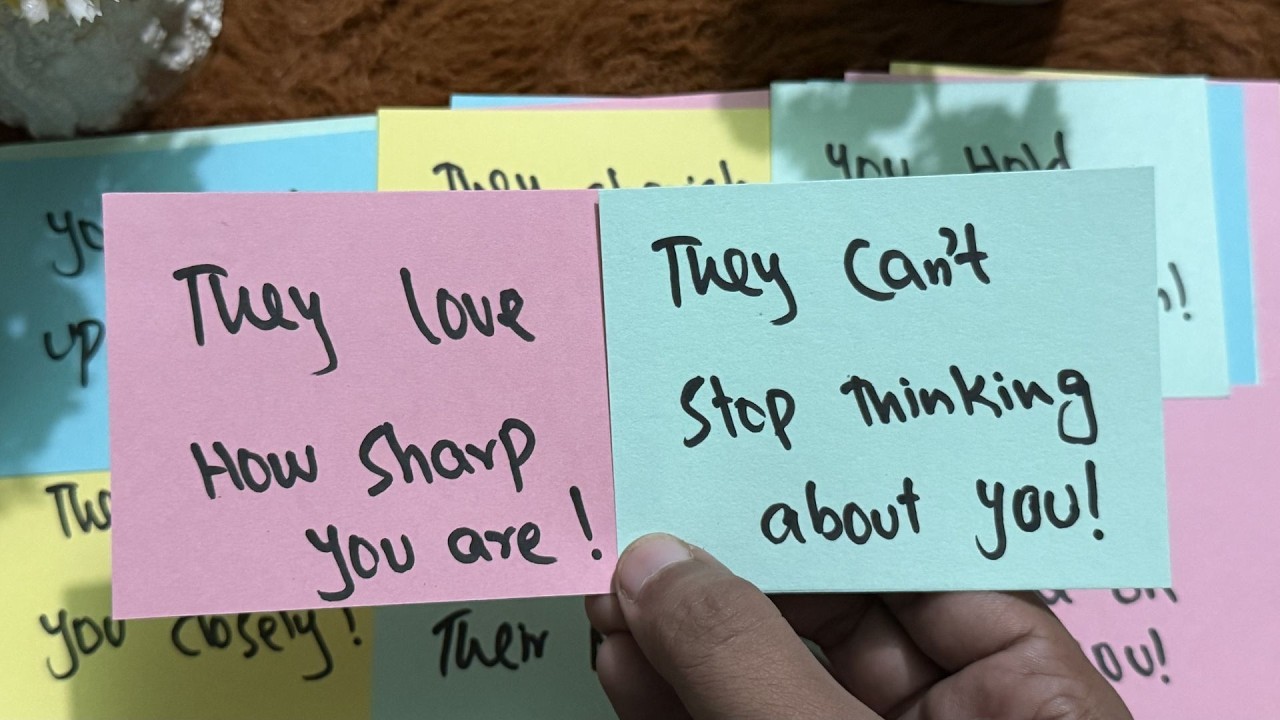 They love
How Sharp
you are!
They Can't
Stop Thinking
about you!
They cherish
you Hold
yo
up
you closely!
Their
ou!